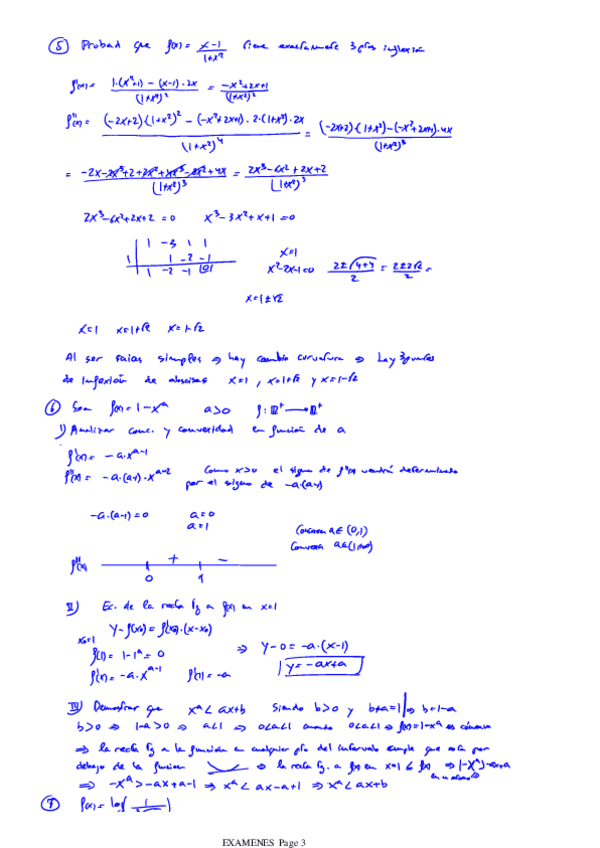 ⑤ Probad que f(x) = (x-1)/(1+x²) tiene exactamente 3 ptos inflexión
f'(x) = (1·(x²+1) - (x-1)·2x)/(1+x²)² = (-x²+2x+1)/(1+x²)²
f''(x) = ((-2x+2)(1+x²)² - (-x²+2x+1)·2·(1+x²)·2x)/(1+x²)⁴ = ((-2x+2)(1+x²) - (-x²+2x+1)·4x)/(1+x²)³
= (-2x-2x³+2+2x²+4x³-8x²+4x)/(1+x²)³ = (2x³-6x²+2x+2)/(1+x²)³
2x³-6x²+2x+2=0 x³-3x²+x+1=0
1 -3 1 1
1 1 -2 -1
1 -2 -1 0
x=1
x²-2x-1=0 (2±√(4+4))/2 = (2±2√2)/2 =
x=1±√2
x=1 x=1+√2 x=1-√2
Al ser raices simples ⇒ hay cambio curvatura ⇒ Hay 3 puntos
de inflexión de abscisas x=1, x=1+√2 y x=1-√2
⑥ Sea f(x)=1-x^a a>0 f: ℝ⁺ → ℝ⁺
I) Analizar conc. y convexidad en función de a
f'(x) = -a·x^(a-1)
f''(x) = -a·(a-1)·x^(a-2) Como x>0 el signo de f''(x) vendrá determinado
por el signo de -a·(a-1)
-a·(a-1)=0 a=0
a=1
Concava a∈(0,1)
Convexa a∈(1,+∞)
f''(x) + -
0 1
II) Ec. de la recta tg a f(x) en x=1
y-f(x₀) = f'(x₀)·(x-x₀)
x₀=1
f(1) = 1-1^a = 0 ⇒ y-0 = -a·(x-1)
f'(x) = -a·x^(a-1) f'(1) = -a y = -ax+a
III) Demostrar que x^a < ax+b siendo b>0 y b+a=1 ⇒ b=1-a
b>0 ⇒ 1-a>0 ⇒ a<1 ⇒ 0<a<1 cuando 0<a<1 ⇒ f(x)=1-x^a es cóncava
⇒ la recta tg a la función en cualquier pto del intervalo cumple que está por
debajo de la función ⇒ la recta tg. a f(x) en x=1 ≤ f(x) ⇒ 1-x^a > -ax+a
⇒ -x^a > -ax+a-1 ⇒ x^a < ax-a+1 ⇒ x^a < ax+b
⑦ f(x) = log
EXAMENES Page 3